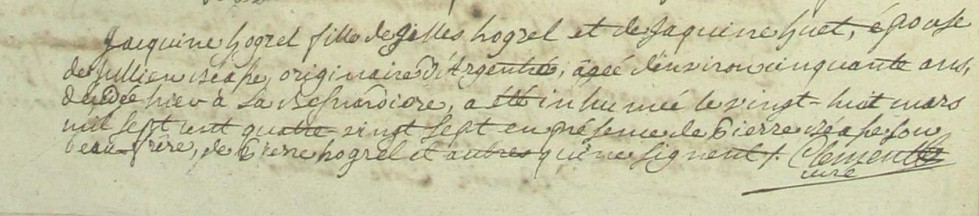 Jacquine hogrel fille de gilles hogrel et de Jaquine huet, épouse
de Jullien réapé, originaire d'Argentré, âgée d'environ cinquante ans,
décédée hier à La Besnardiere, a été inhumée le vingt-huit mars
mil sept cent quatre-vingt sept en présence de Pierre réapé son
beau-frère, de Pierre hogrel et autres qui ne signent /. Clement
curé